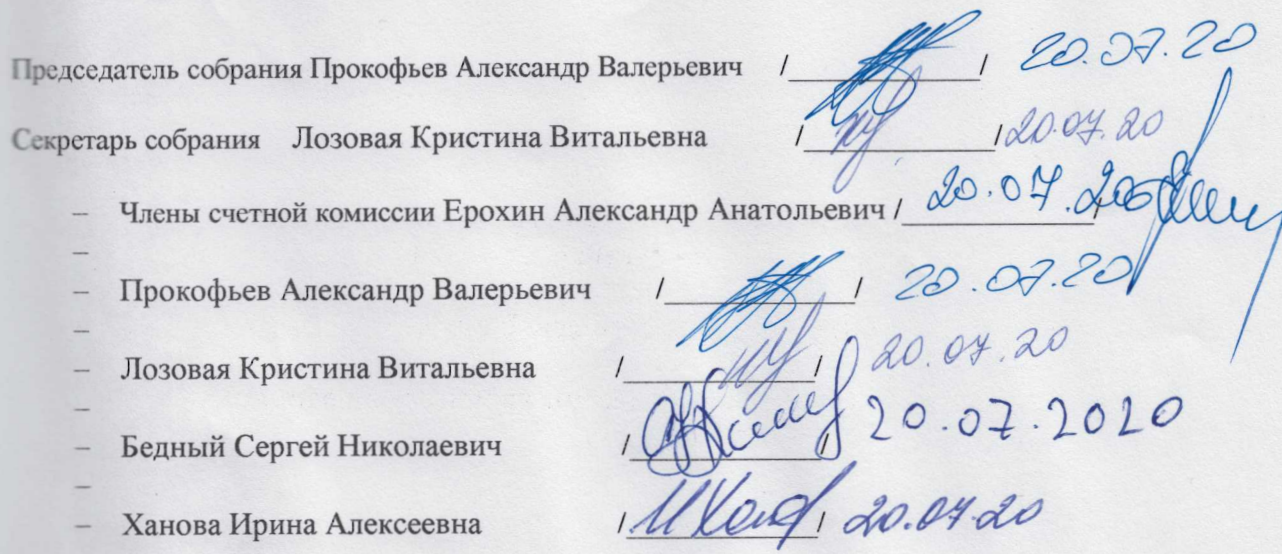 Председатель собрания Прокофьев Александр Валерьевич /____________/ 20.07.20
Секретарь собрания Лозовая Кристина Витальевна /____________/ 20.07.20
– Члены счетной комиссии Ерохин Александр Анатольевич /____________/ 20.07.20
–
– Прокофьев Александр Валерьевич /____________/ 20.07.20
–
– Лозовая Кристина Витальевна /____________/ 20.07.20
–
– Бедный Сергей Николаевич /____________/ 20.07.2020
–
– Ханова Ирина Алексеевна /____________/ 20.07.20